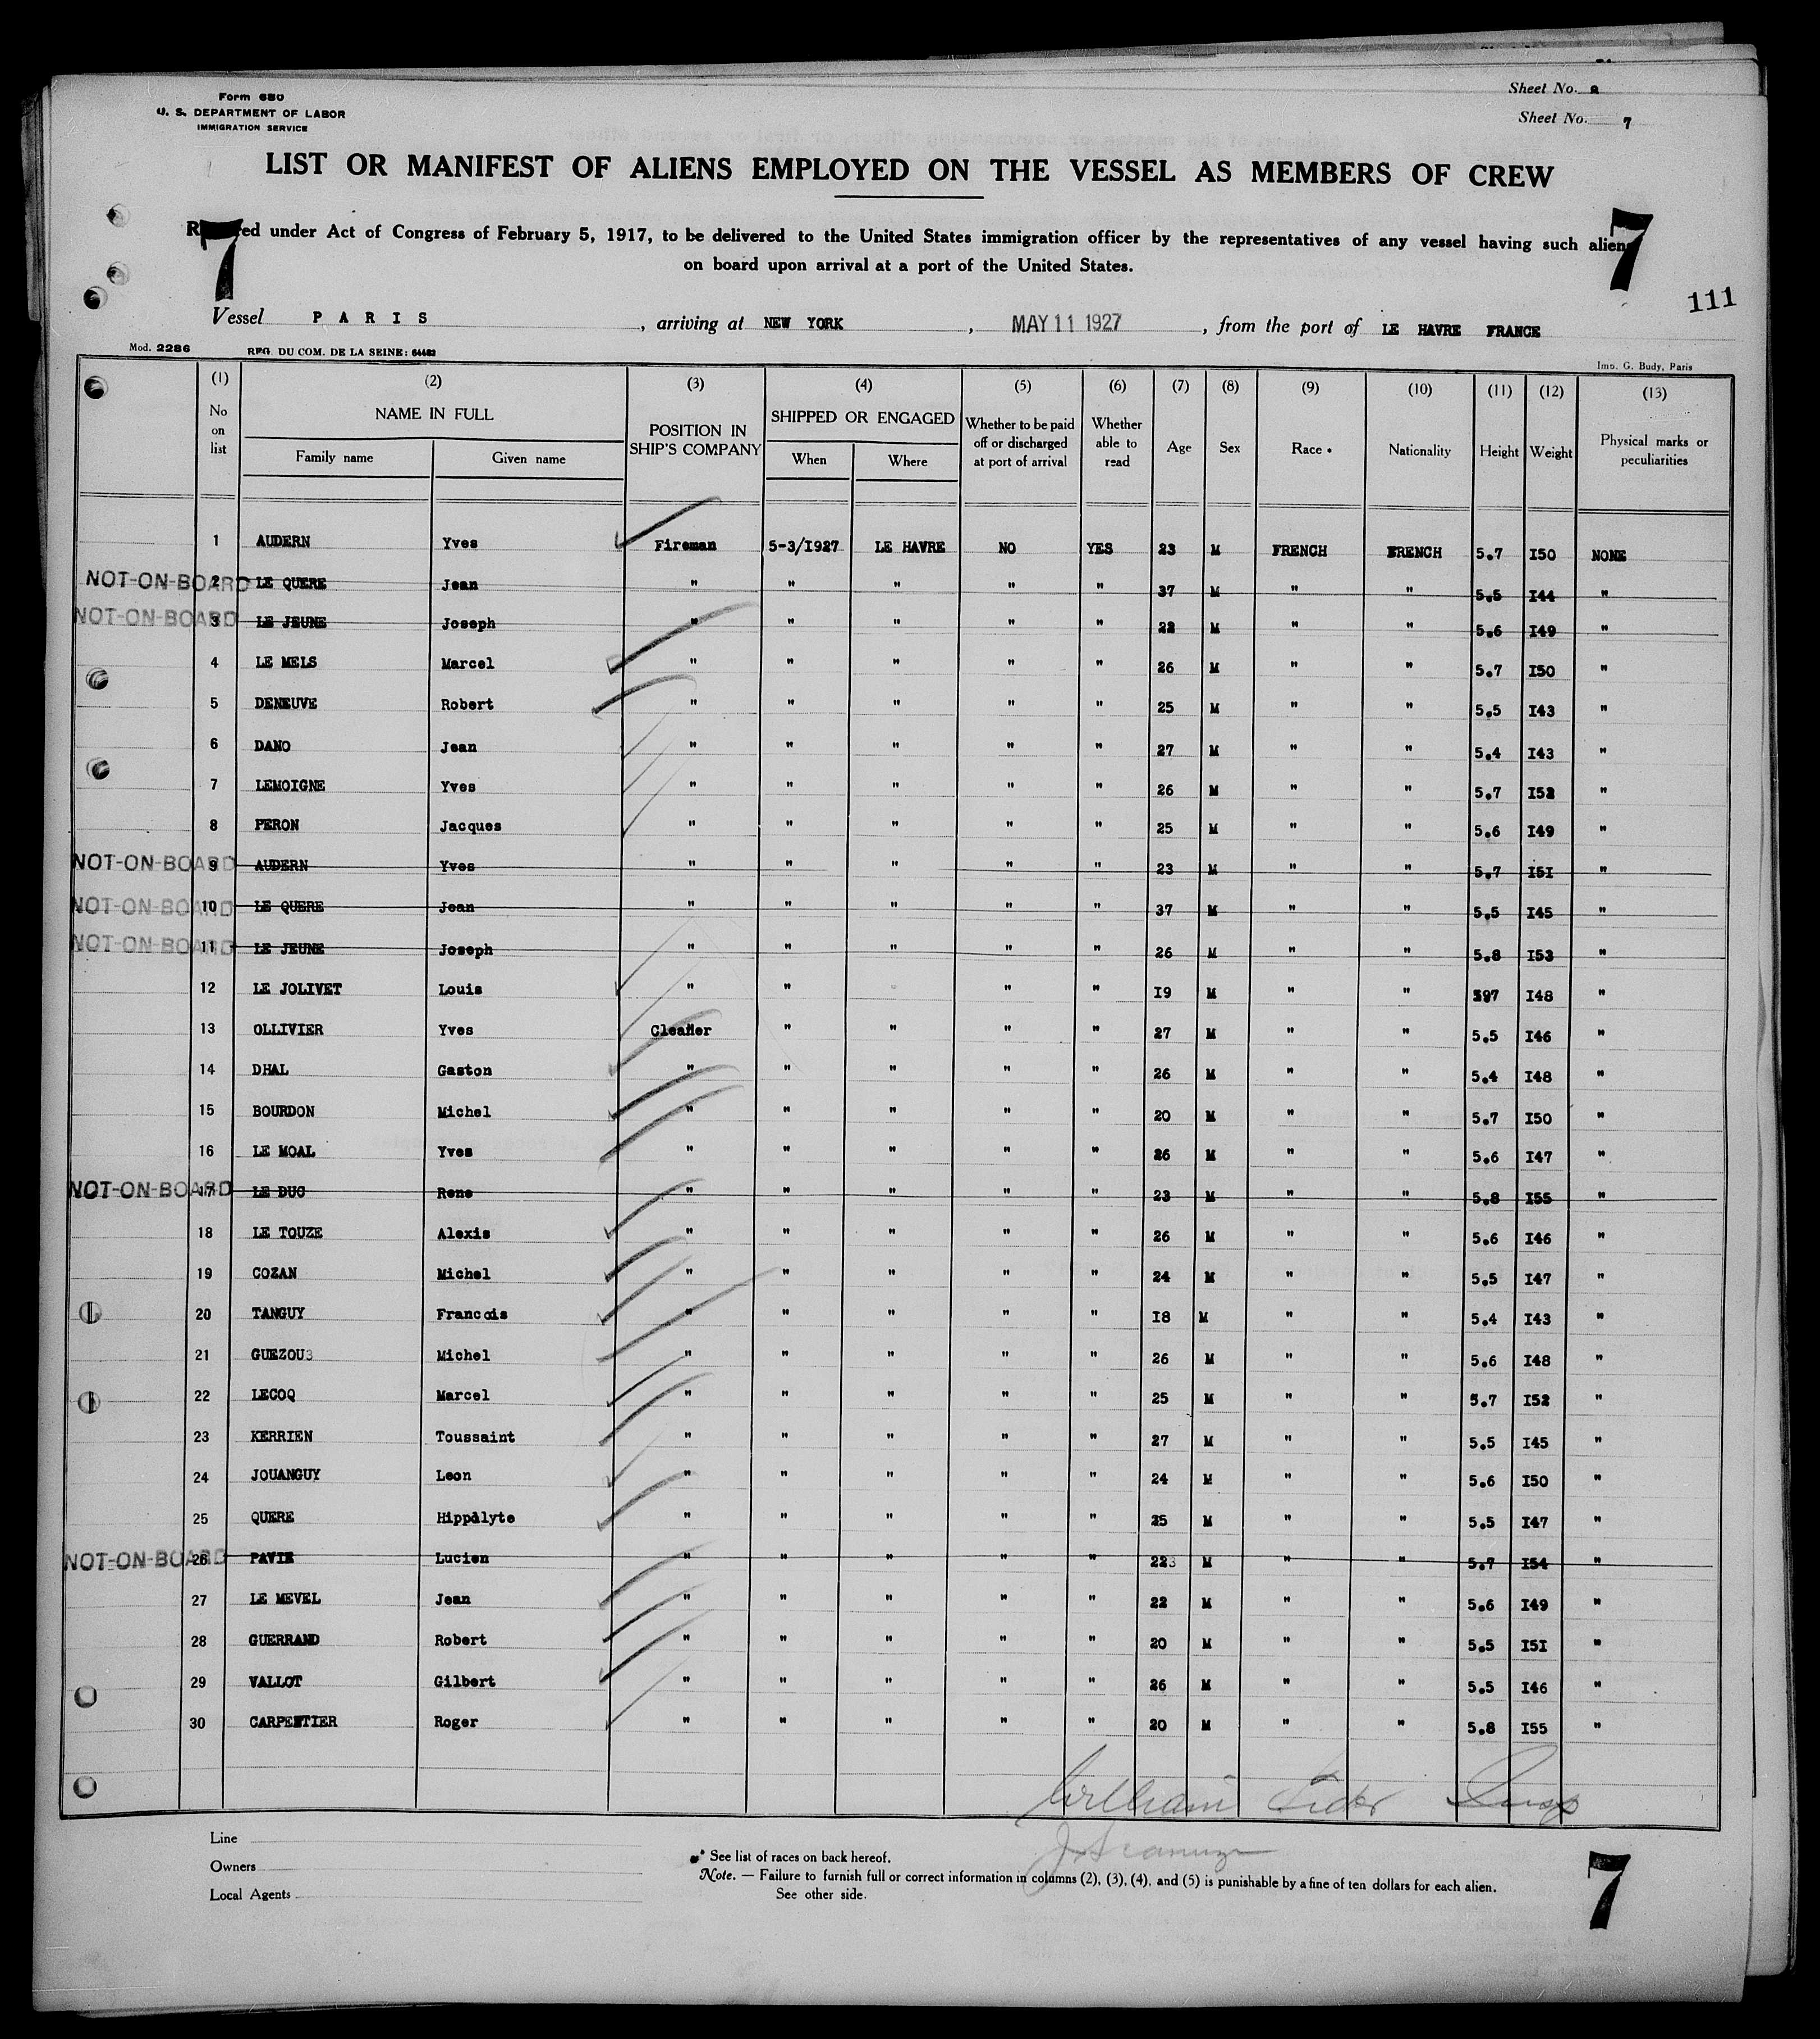 Sheet No. 8
Form 680
U. S. DEPARTMENT OF LABOR
IMMIGRATION SERVICE
Sheet No. 7
LIST OR MANIFEST OF ALIENS EMPLOYED ON THE VESSEL AS MEMBERS OF CREW
7 ed under Act of Congress of February 5, 1917, to be delivered to the United States immigration officer by the representatives of any vessel having such aliens 7
on board upon arrival at a port of the United States.
111
Vessel PARIS, arriving at NEW YORK, MAY 11 1927, from the port of LE HAVRE FRANCE
Mod. 2286 REG. DU COM. DE LA SEINE: 64483 Imp. G. Budy, Paris
(1) (2) (3) (4) (5) (6) (7) (8) (9) (10) (11) (12) (13)
No on list NAME IN FULL Family name Given name POSITION IN SHIP'S COMPANY SHIPPED OR ENGAGED When Where Whether to be paid off or discharged at port of arrival Whether able to read Age Sex Race • Nationality Height Weight Physical marks or peculiarities
1 AUDERN Yves Fireman 5-3/I927 LE HAVRE NO YES 23 M FRENCH FRENCH 5.7 I50 NONE
NOT-ON-BOARD 2 LE QUERE Jean " " " " " 37 M " " 5.5 I44 "
NOT-ON-BOARD 3 LE JEUNE Joseph " " " " " 22 M " " 5.6 I49 "
4 LE MELS Marcel " " " " " 26 M " " 5.7 I50 "
5 DENEUVE Robert " " " " " 25 M " " 5.5 I43 "
6 DANO Jean " " " " " 27 M " " 5.4 I43 "
7 LEMOIGNE Yves " " " " " 26 M " " 5.7 I52 "
8 PERON Jacques " " " " " 25 M " " 5.6 I49 "
NOT-ON-BOARD 9 AUDERN Yves " " " " " 23 M " " 5.7 I5I "
NOT-ON-BOARD 10 LE QUERE Jean " " " " " 37 M " " 5.5 I45 "
NOT-ON-BOARD 11 LE JEUNE Joseph " " " " " 26 M " " 5.8 I53 "
12 LE JOLIVET Louis " " " " I9 M " " 597 I48 "
13 OLLIVIER Yves Cleaner " " " " 27 M " " 5.5 I46 "
14 DHAL Gaston " " " " " 26 M " " 5.4 I48 "
15 BOURDON Michel " " " " " 20 M " " 5.7 I50 "
16 LE MOAL Yves " " " " " 26 M " " 5.6 I47 "
NOT-ON-BOARD 17 LE DUC Rene " " " " " 23 M " " 5.8 I55 "
18 LE TOUZE Alexis " " " " " 26 M " " 5.6 I46 "
19 COZAN Michel " " " " " 24 M " " 5.5 I47 "
20 TANGUY Francois " " " " " I8 M " " 5.4 I43 "
21 GUEZOU3 Michel " " " " " 26 M " " 5.6 I48 "
22 LECOQ Marcel " " " " " 25 M " " 5.7 I52 "
23 KERRIEN Toussaint " " " " " 27 M " " 5.5 I45 "
24 JOUANGUY Leon " " " " " 24 M " " 5.6 I50 "
25 QUERE Hippolyte " " " " " 25 M " " 5.5 I47 "
NOT-ON-BOARD 26 PAVIE Lucien " " " " " 223 M " " 5.7 I54 "
27 LE MEVEL Jean " " " " " 22 M " " 5.6 I49 "
28 GUERRAND Robert " " " " " 20 M " " 5.5 I5I "
29 VALLOT Gilbert " " " " " 26 M " " 5.5 I46 "
30 CARPENTIER Roger " " " " " 20 M " " 5.8 I55 "
William Insp
Line
Owners
Local Agents
* See list of races on back hereof.
Note. — Failure to furnish full or correct information in columns (2), (3), (4), and (5) is punishable by a fine of ten dollars for each alien.
See other side.
7